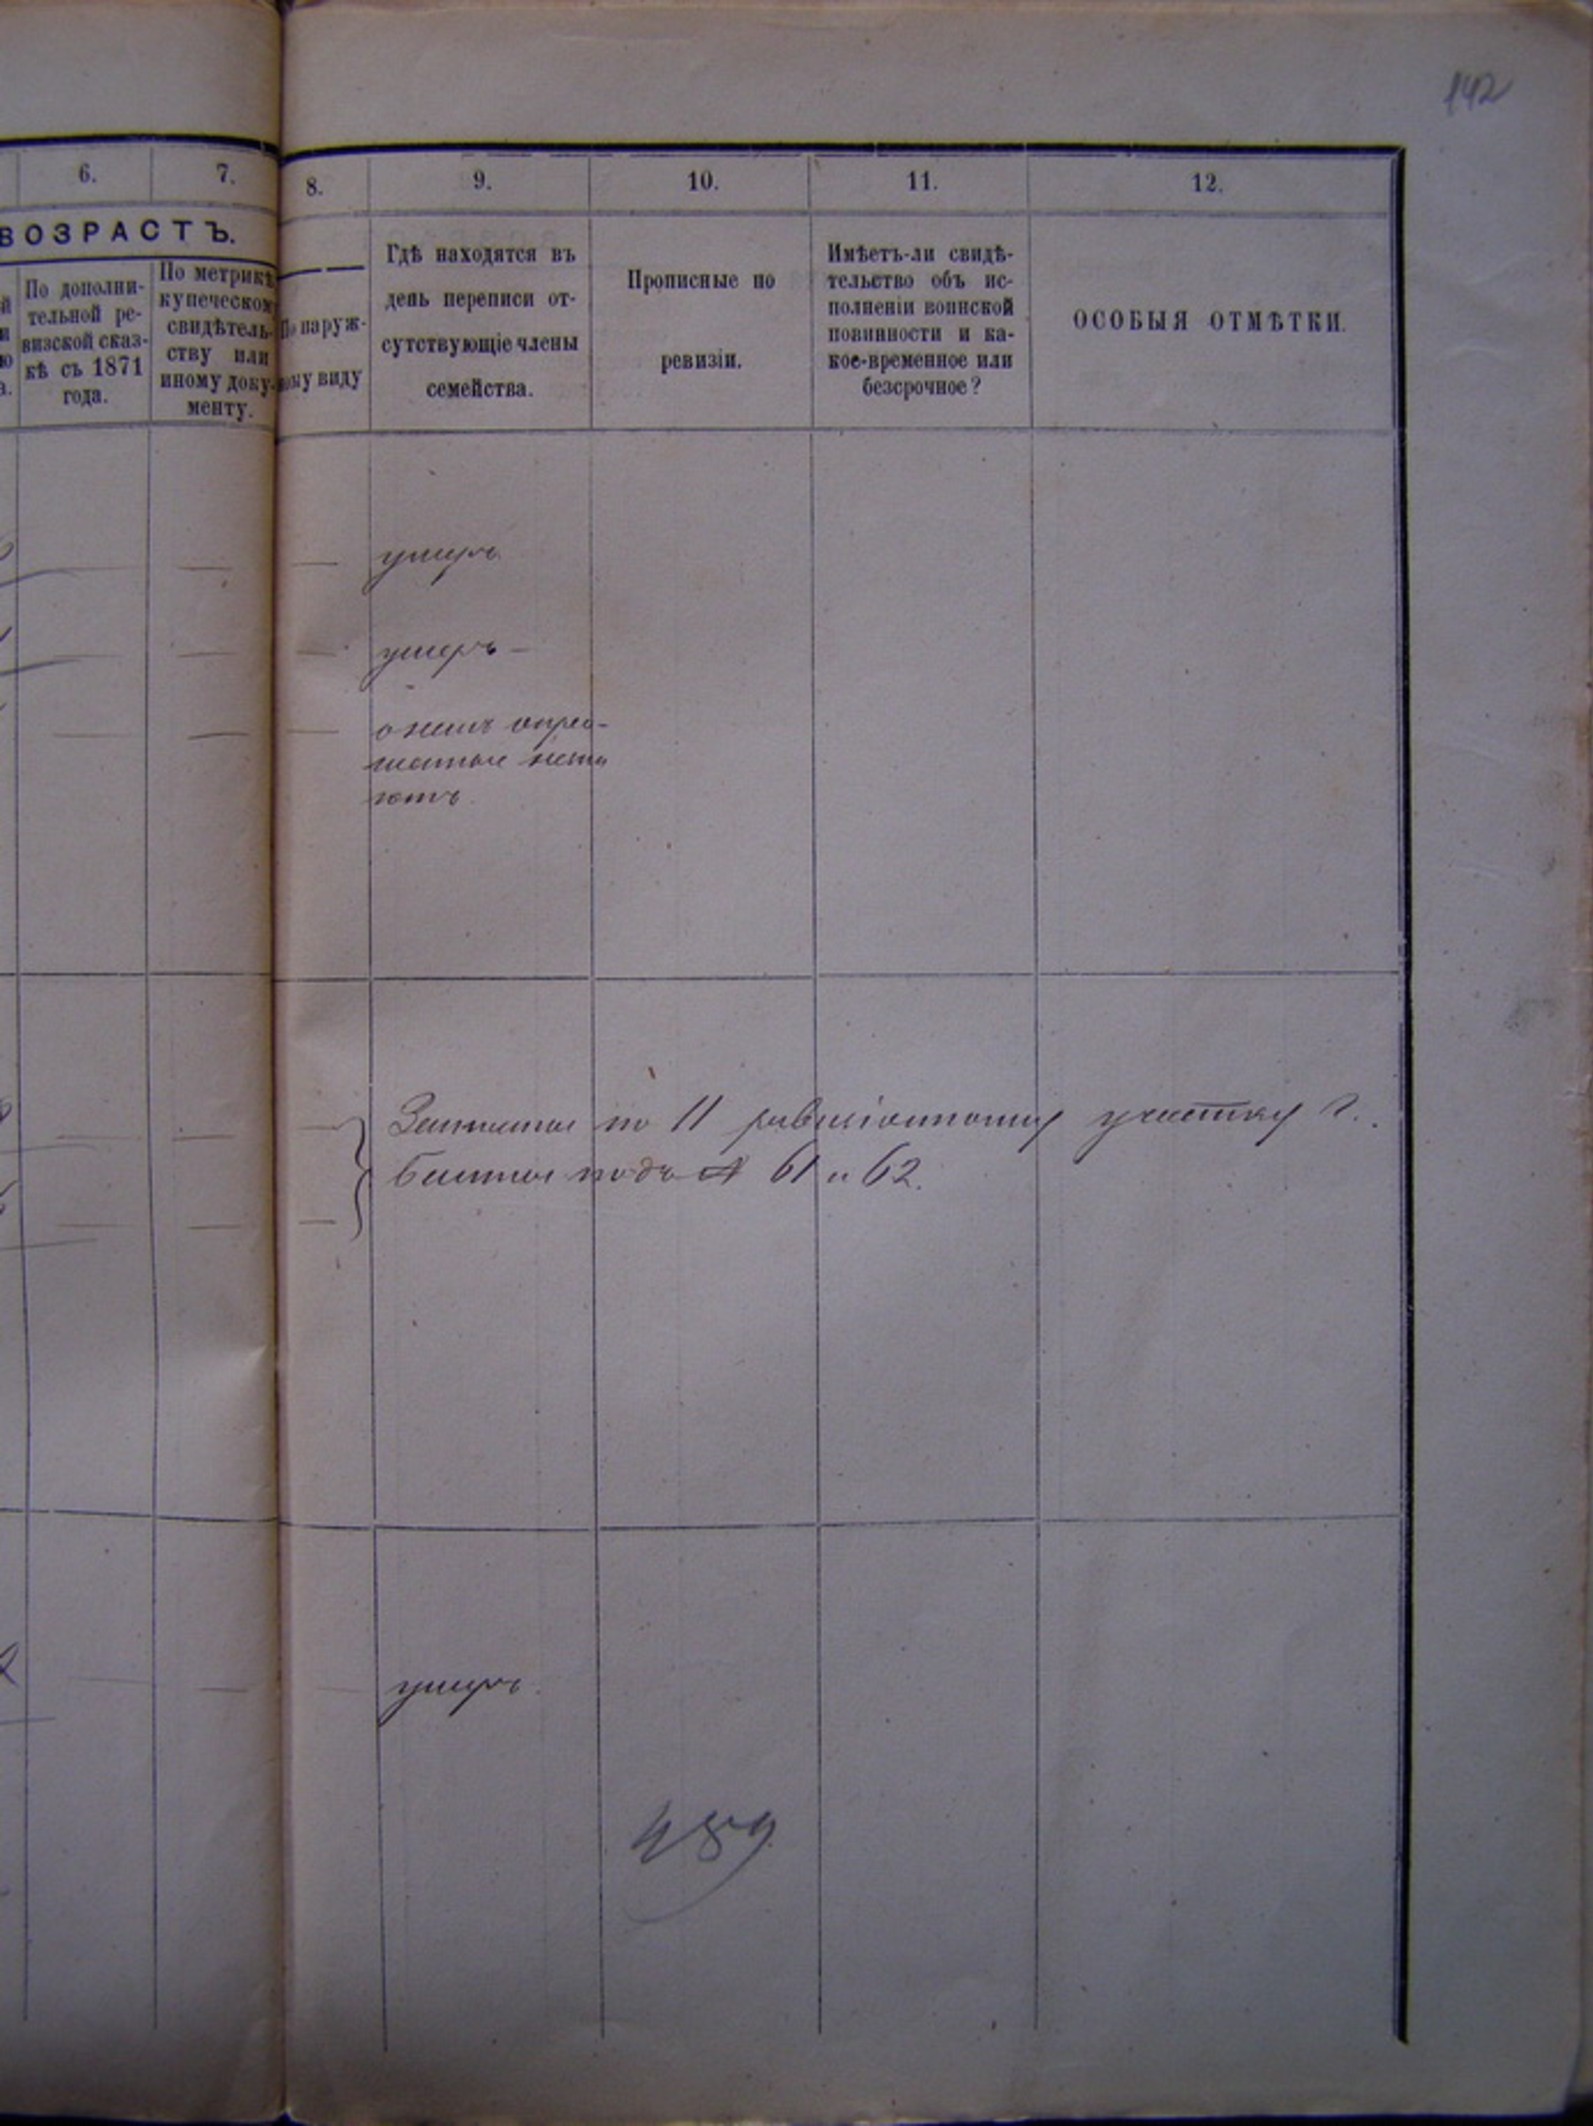 142
6.
7.
8.
9.
10.
11.
12.
ВОЗРАСТЪ.
По дополни-
тельной ре-
визской сказ-
кѣ съ 1871
года.
По метрикѣ
купеческом
свидѣтель-
ству или
иному доку-
менту.
По наруж-
ному виду
Гдѣ находятся въ
день переписи от-
сутствующіе члены
семейства.
Прописные по
ревизіи.
Имѣетъ-ли свидѣ-
тельство объ ис-
полненіи воинской
повинности и ка-
кое-временное или
безсрочное?
ОСОБЫЯ ОТМѢТКИ.
умеръ
умеръ —
о немъ
ютъ.
по 11 ревизіонному участку г.
подъ № 61 и 62.
умеръ.
489